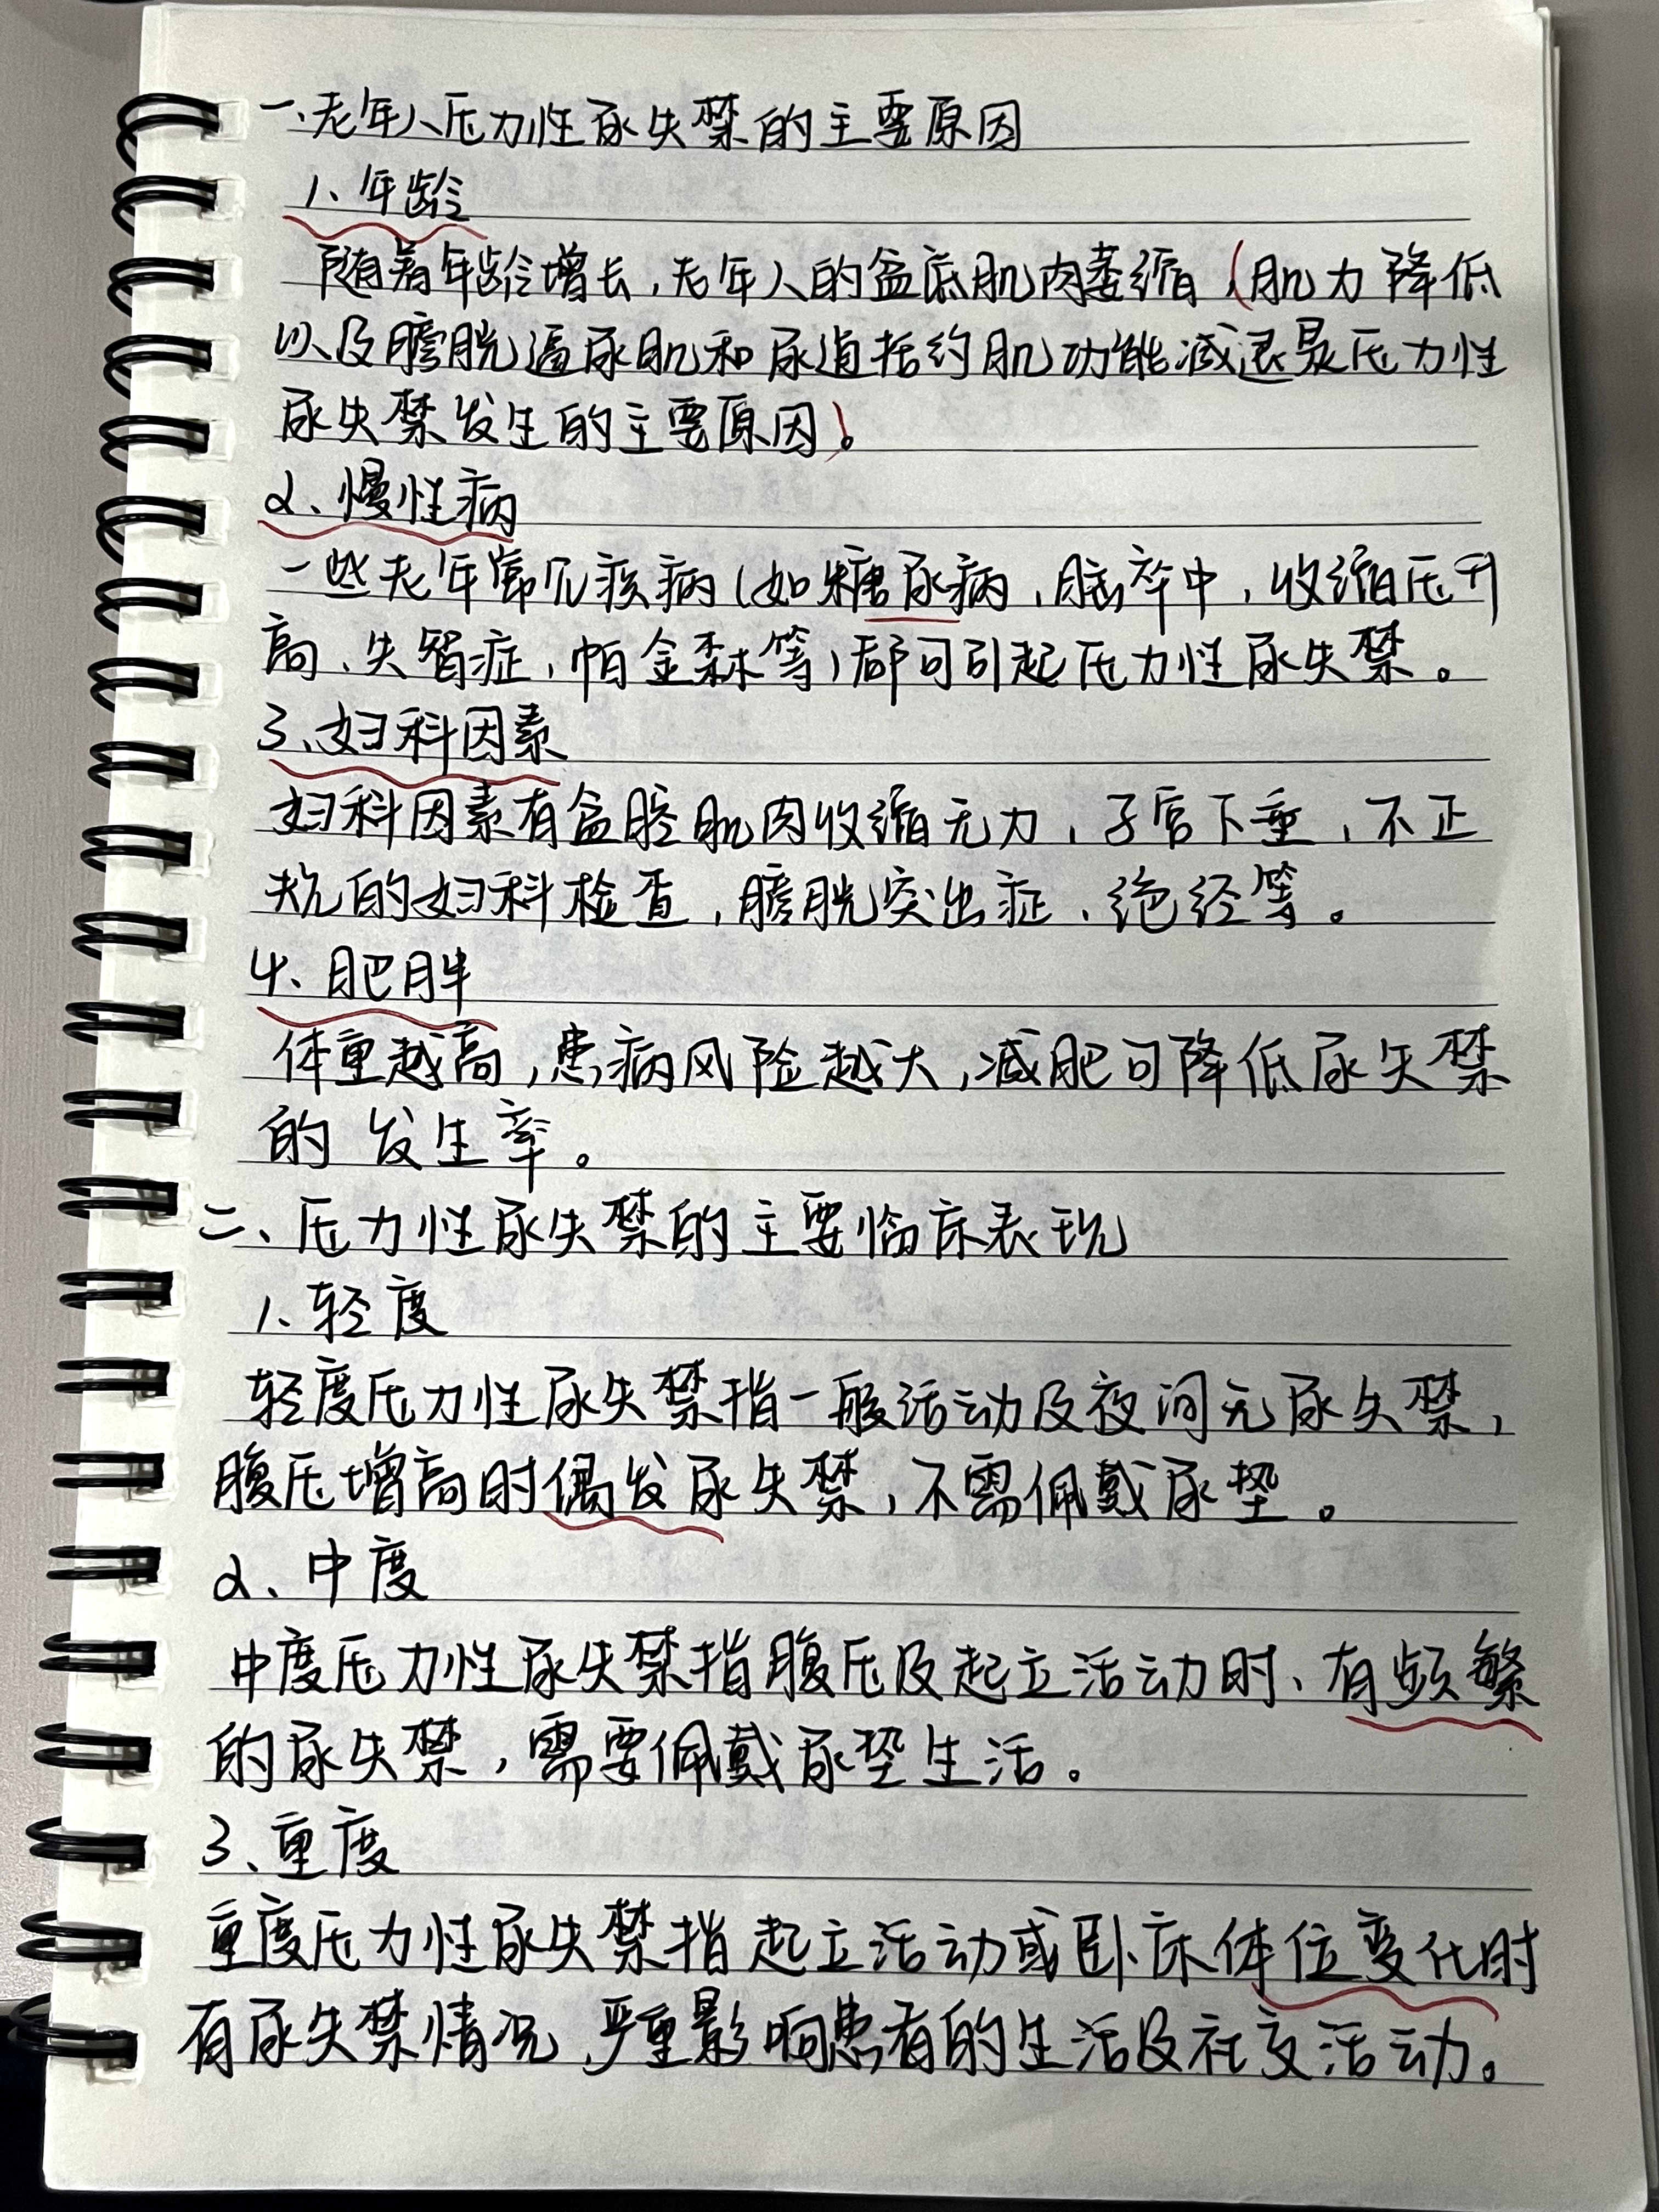 一、老年人压力性尿失禁的主要原因
1、年龄
随着年龄增长,老年人的盆底肌肉萎缩(肌力降低
以及膀胱逼尿肌和尿道括约肌功能减退是压力性
尿失禁发生的主要原因)。
2、慢性病
一些老年常见疾病(如糖尿病,脑卒中,收缩压升
高、失智症,帕金森等)都可引起压力性尿失禁。
3、妇科因素
妇科因素有盆腔肌肉收缩无力,子宫下垂,不正
规的妇科检查,膀胱突出症、绝经等。
4、肥胖
体重越高,患病风险越大,减肥可降低尿失禁
的发生率。
二、压力性尿失禁的主要临床表现
1、轻度
轻度压力性尿失禁指一般活动及夜间无尿失禁,
腹压增高时偶发尿失禁,不需佩戴尿垫。
2、中度
中度压力性尿失禁指腹压及起立活动时、有频繁
的尿失禁,需要佩戴尿垫生活。
3、重度
重度压力性尿失禁指起立活动或卧床体位变化时
有尿失禁情况,严重影响患者的生活及社交活动。